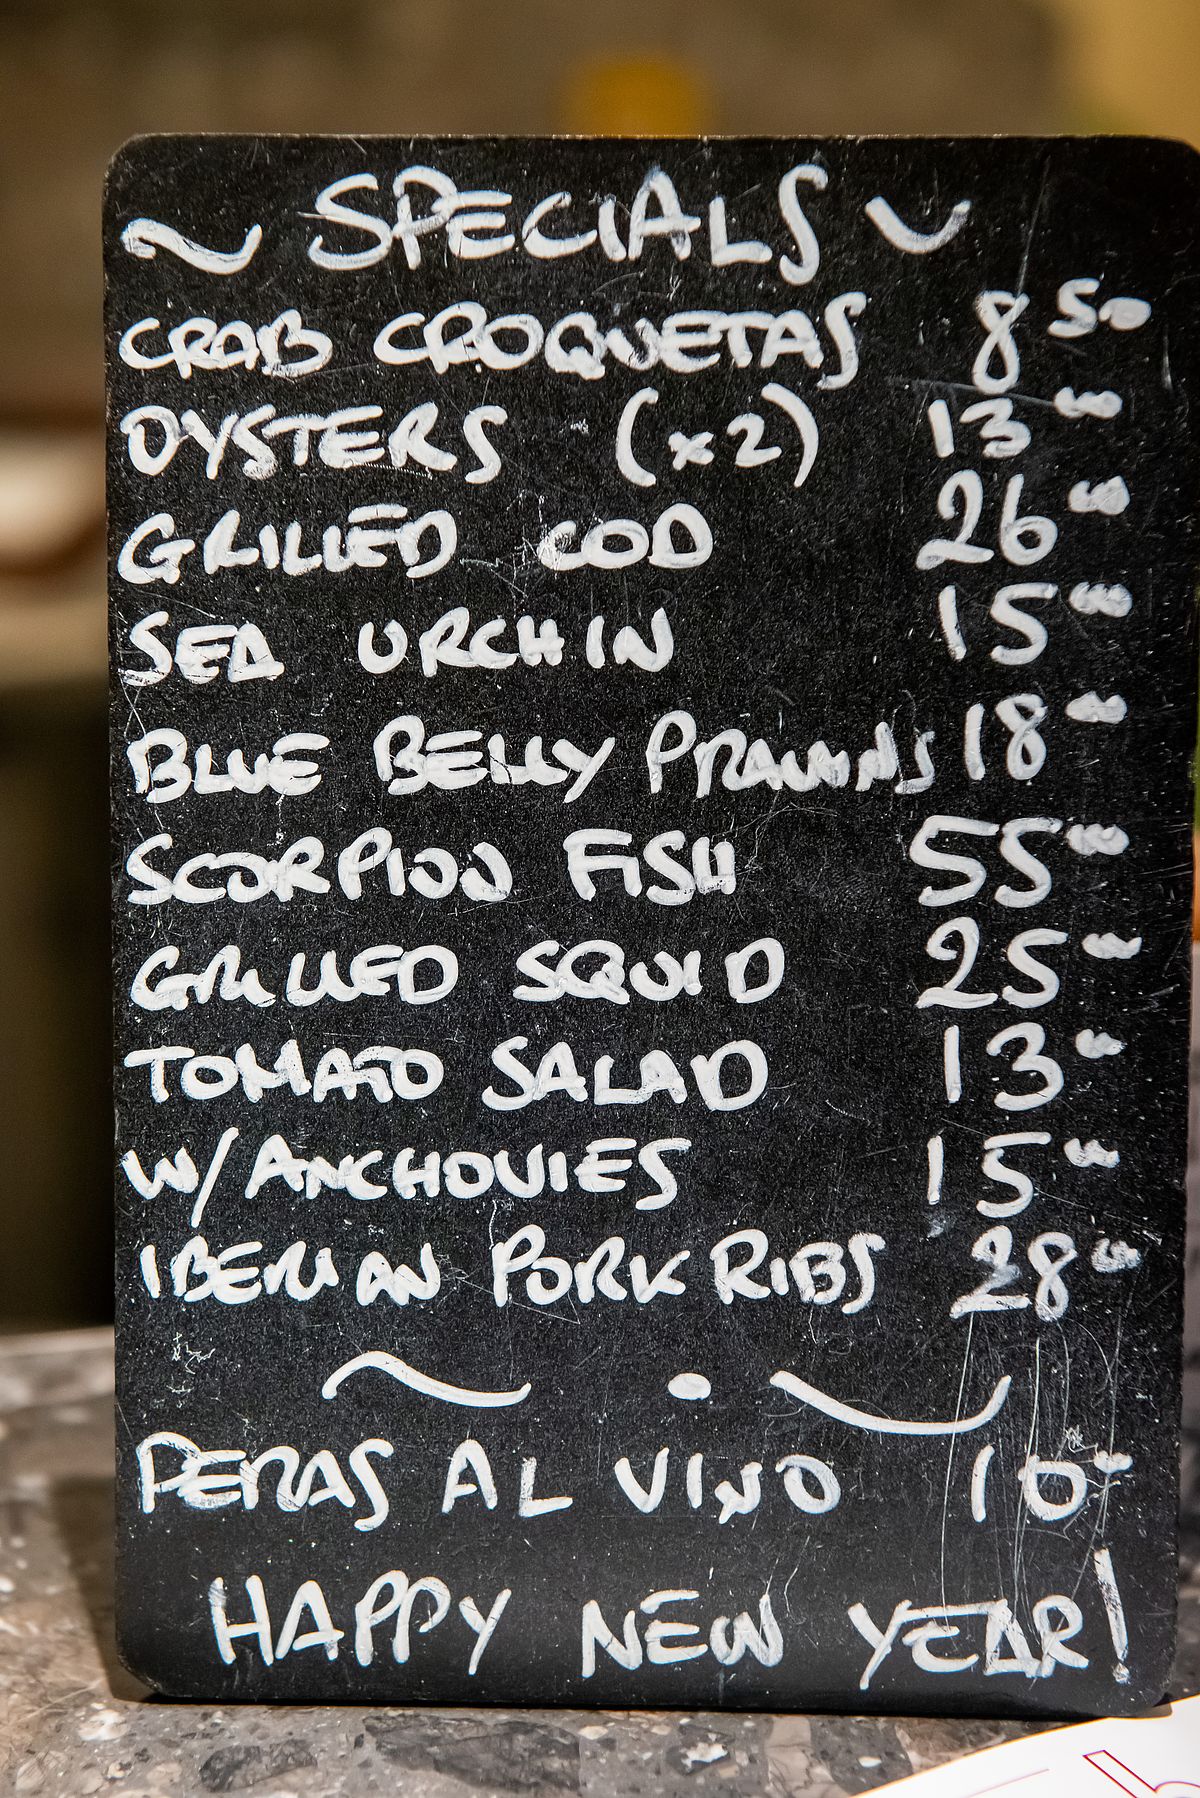 ~ SPECIALS ~
CRAB CROQUETAS 8.50
OYSTERS (x2) 13 00
GRILLED COD 26 00
SEA URCHIN 15 00
BLUE BELLY PRAWNS 18 00
SCORPION FISH 55 00
GRILLED SQUID 25 00
TOMATO SALAD 13 00
W/ANCHOVIES 15 00
IBERIAN PORK RIBS 28 00
PERAS AL VINO 10
HAPPY NEW YEAR!